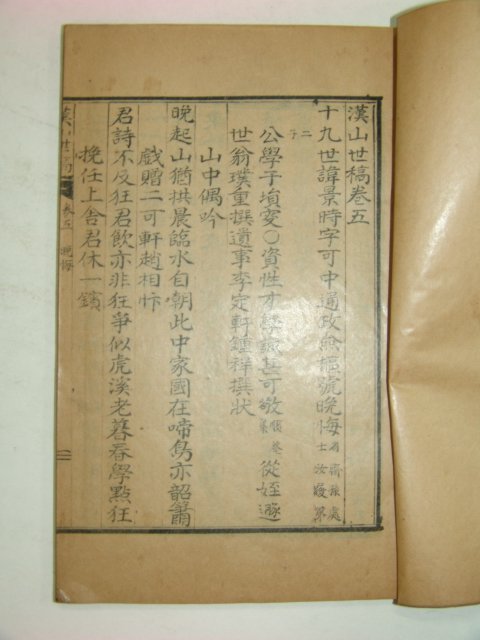 漢山世稿卷五
十九世諱景時字可中通政 號晩悔
公學于塤叜〇資性 可敬 從姪
世翁璞重撰遺事李定軒鍾祥撰狀
山中偶吟
晩起山猶拱晨臨水自朝此中家國在啼鳥亦韶
戱贈二可軒趙相忭
君詩不及狂君飮亦非狂爭似虎溪老暮春學點狂
挽任上舍君休一鎖
漢山世稿 卷五 晩悔